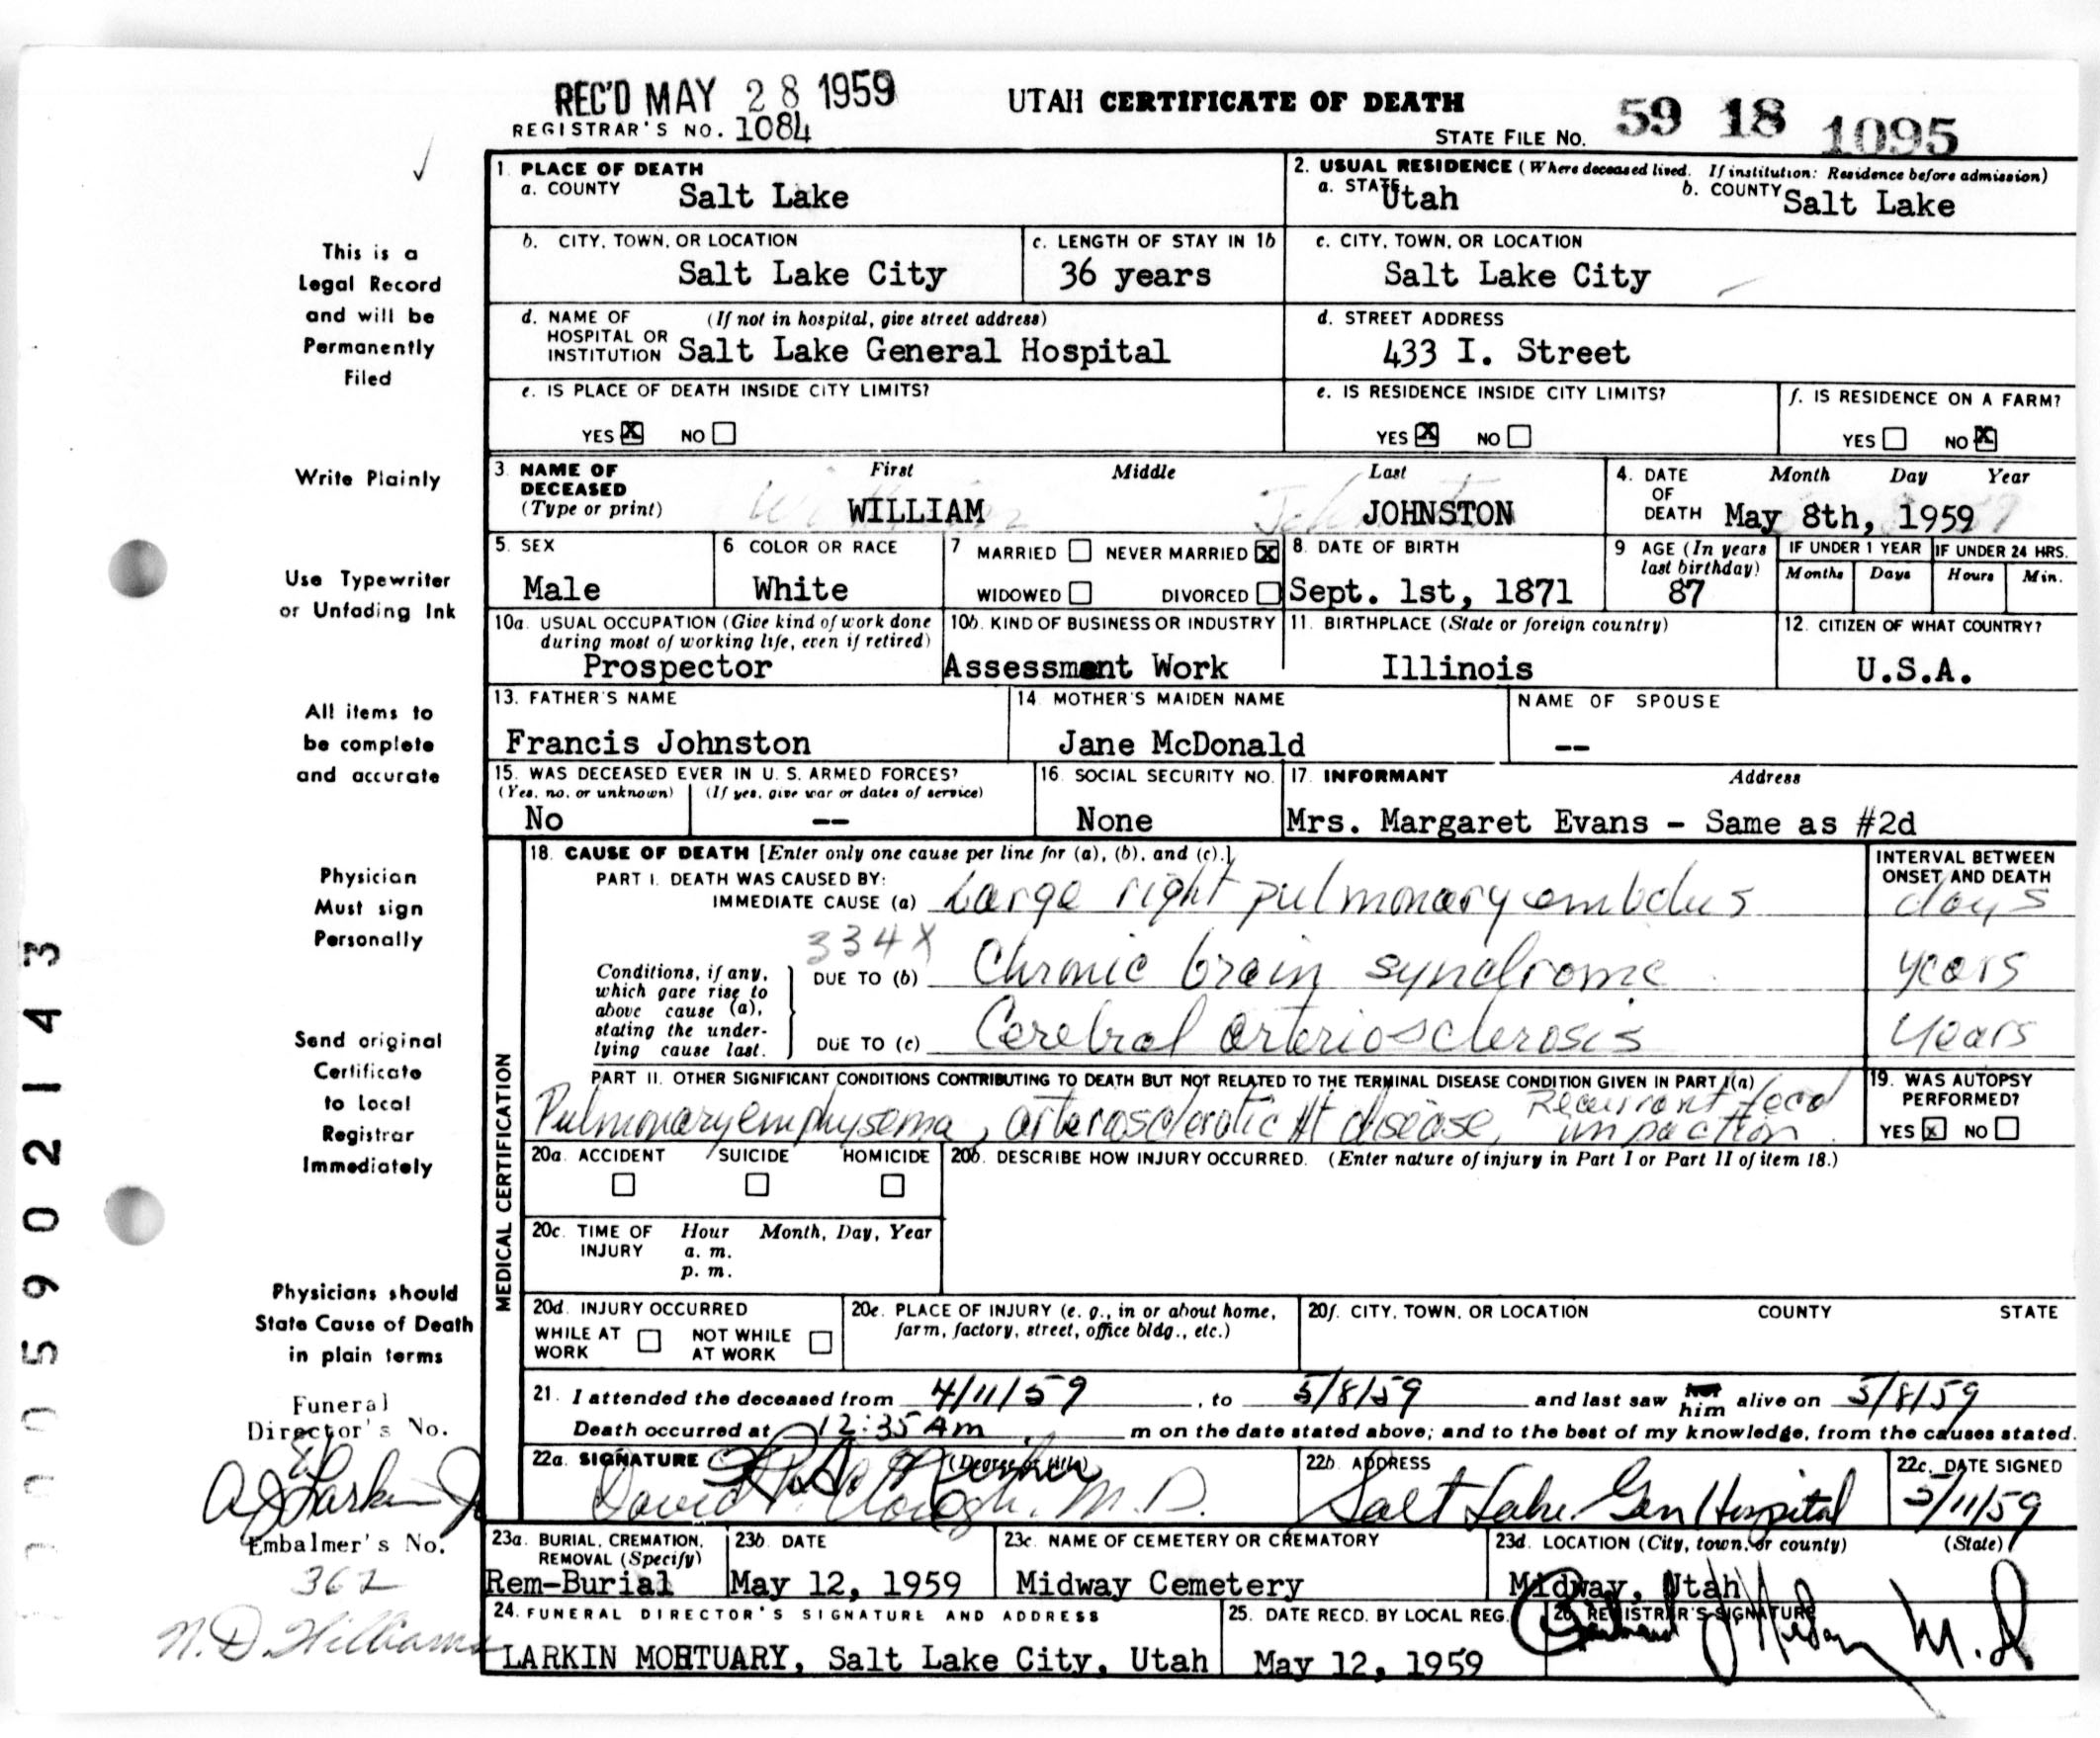 REC'D MAY 28 1959
UTAH CERTIFICATE OF DEATH
REGISTRAR'S NO. 1084
STATE FILE NO. 59 18 1095
This is a
Legal Record
and will be
Permanently
Filed
Write Plainly
Use Typewriter
or Unfading Ink
All items to
be complete
and accurate
Physician
Must sign
Personally
Send original
Certificate
to Local
Registrar
Immediately
Physicians should
State Cause of Death
in plain terms
Funeral
Director's No.
Embalmer's No.
362
N. D. Williams
005902143
1. PLACE OF DEATH
a. COUNTY Salt Lake
2. USUAL RESIDENCE (Where deceased lived. If institution: Residence before admission)
a. STATE Utah b. COUNTY Salt Lake
b. CITY, TOWN, OR LOCATION
Salt Lake City
c. LENGTH OF STAY IN 1b
36 years
c. CITY, TOWN, OR LOCATION
Salt Lake City
d. NAME OF (If not in hospital, give street address)
HOSPITAL OR
INSTITUTION Salt Lake General Hospital
d. STREET ADDRESS
433 I. Street
e. IS PLACE OF DEATH INSIDE CITY LIMITS?
YES X NO
e. IS RESIDENCE INSIDE CITY LIMITS?
YES X NO
f. IS RESIDENCE ON A FARM?
YES NO X
3. NAME OF DECEASED (Type or print)
First Middle Last
WILLIAM JOHNSTON
4. DATE OF DEATH Month Day Year
May 8th, 1959
5. SEX
Male
6 COLOR OR RACE
White
7 MARRIED NEVER MARRIED X
WIDOWED DIVORCED
8. DATE OF BIRTH
Sept. 1st, 1871
9 AGE (In years last birthday)
87
IF UNDER 1 YEAR IF UNDER 24 HRS.
Months Days Hours Min.
10a. USUAL OCCUPATION (Give kind of work done
during most of working life, even if retired)
Prospector
10b. KIND OF BUSINESS OR INDUSTRY
Assessment Work
11. BIRTHPLACE (State or foreign country)
Illinois
12. CITIZEN OF WHAT COUNTRY?
U.S.A.
13. FATHER'S NAME
Francis Johnston
14. MOTHER'S MAIDEN NAME
Jane McDonald
NAME OF SPOUSE
--
15. WAS DECEASED EVER IN U. S. ARMED FORCES?
(Yes, no, or unknown) (If yes, give war or dates of service)
No --
16. SOCIAL SECURITY NO.
None
17. INFORMANT Address
Mrs. Margaret Evans - Same as #2d
MEDICAL CERTIFICATION
18. CAUSE OF DEATH [Enter only one cause per line for (a), (b), and (c).]
INTERVAL BETWEEN
ONSET AND DEATH
PART I. DEATH WAS CAUSED BY:
IMMEDIATE CAUSE (a) Large right pulmonary embolus days
334X
Conditions, if any,
which gave rise to
above cause (a),
stating the under-
lying cause last.
DUE TO (b) Chronic brain syndrome years
DUE TO (c) Cerebral arteriosclerosis years
PART II. OTHER SIGNIFICANT CONDITIONS CONTRIBUTING TO DEATH BUT NOT RELATED TO THE TERMINAL DISEASE CONDITION GIVEN IN PART I(a)
Pulmonary emphysema, arteriosclerotic Ht disease, Recurrent fecal
impaction
19. WAS AUTOPSY
PERFORMED?
YES X NO
20a. ACCIDENT SUICIDE HOMICIDE
20b. DESCRIBE HOW INJURY OCCURRED. (Enter nature of injury in Part I or Part II of item 18.)
20c. TIME OF INJURY Hour Month, Day, Year
a. m.
p. m.
20d. INJURY OCCURRED
WHILE AT WORK NOT WHILE AT WORK
20e. PLACE OF INJURY (e. g., in or about home,
farm, factory, street, office bldg., etc.)
20f. CITY, TOWN, OR LOCATION COUNTY STATE
21. I attended the deceased from 4/11/59, to 5/8/59 and last saw him alive on 5/8/59
Death occurred at 12:35 Am m on the date stated above; and to the best of my knowledge, from the causes stated.
22a. SIGNATURE (Degree or title)
David P. Clough, M.D.
22b. ADDRESS
Salt Lake Gen Hospital
22c. DATE SIGNED
5/11/59
23a. BURIAL, CREMATION,
REMOVAL (Specify)
Rem-Burial
23b. DATE
May 12, 1959
23c. NAME OF CEMETERY OR CREMATORY
Midway Cemetery
23d. LOCATION (City, town, or county) (State)
Midway, Utah
24. FUNERAL DIRECTOR'S SIGNATURE AND ADDRESS
LARKIN MORTUARY, Salt Lake City, Utah
25. DATE RECD. BY LOCAL REG.
May 12, 1959
26. REGISTRAR'S SIGNATURE
M.D